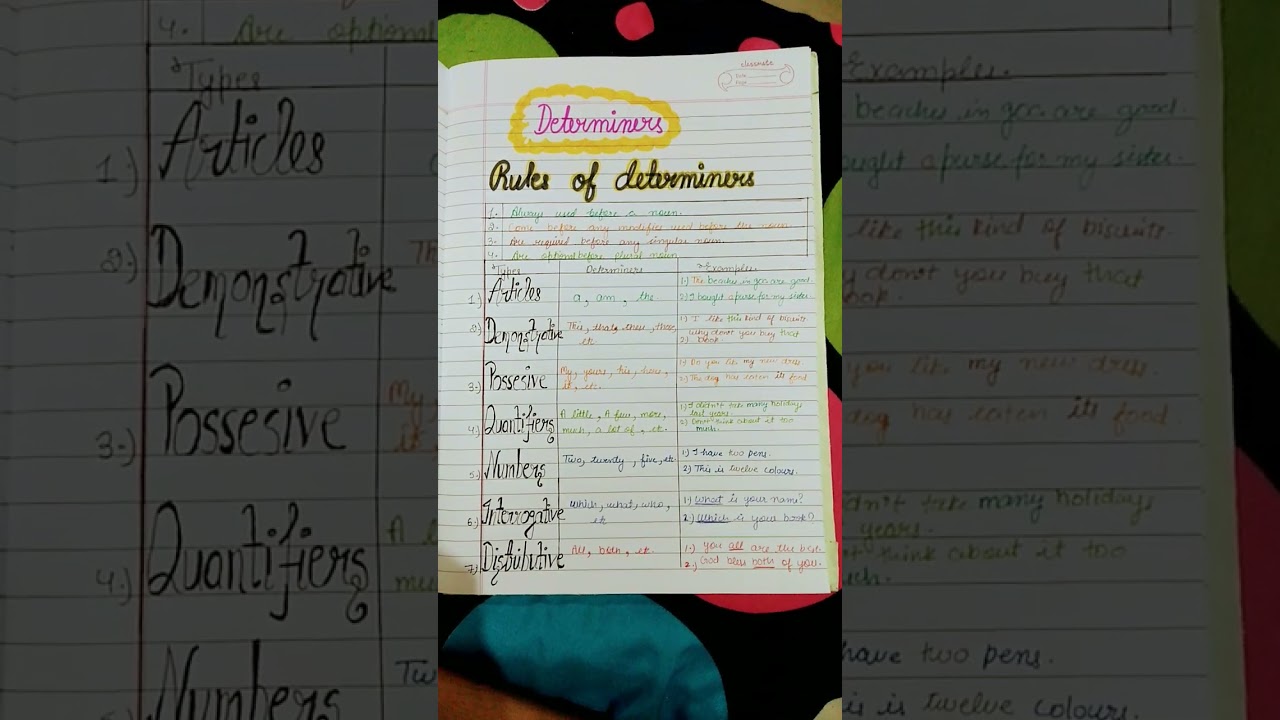 classmate
Date
Page
Determiners
Rules of determiners
1. Always used before a noun.
2. Come before any modifier used before the noun
3. Are required before any singular noun.
4. Are optional before plural noun
Types Determiners Examples
1) Articles a, am, the. 1.) The beaches in goa are good.
2) I bought a purse for my sister.
2) Demonstrative This, that, these, those, etc 1) I like this kind of biscuits.
2) Why don't you buy that book.
3.) Possesive My, yours, his, hers, it, etc. 1) Do you like my new dress.
2) The dog has eaten its food
4.) Quantifiers A little, A few, more, much, a lot of, etc. 1) I didn't take many holidays last years.
2) Don't think about it too much.
5.) Numbers Two, twenty, five, etc. 1.) I have two pens.
2) This is twelve colours.
6.) Interrogative which, what, who, etc 1.) What is your name?
2.) Which is your book?
7.) Distributive All, both, etc. 1.) you all are the best.
2.) God bless both of you.